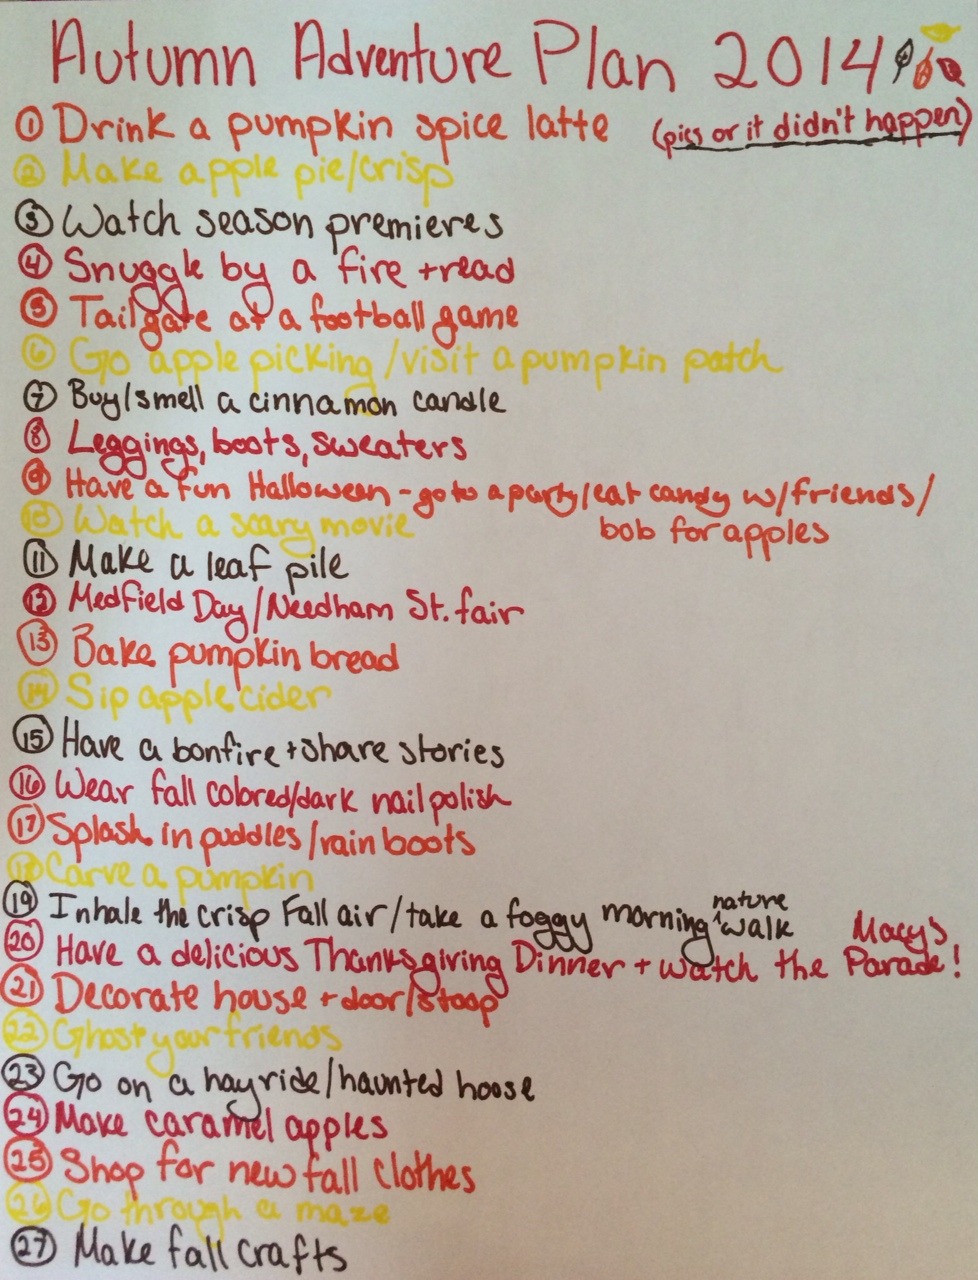 Autumn Adventure Plan 2014
① Drink a pumpkin spice latte (pics or it didn't happen)
② Make apple pie/crisp
③ Watch season premieres
④ Snuggle by a fire + read
⑤ Tailgate at a football game
⑥ Go apple picking/visit a pumpkin patch
⑦ Buy/smell a cinnamon candle
⑧ Leggings, boots, sweaters
⑨ Have a fun Halloween - go to a party/eat candy w/friends/
bob for apples
⑩ Watch a scary movie
⑪ Make a leaf pile
⑫ Medfield Day/Needham St. fair
⑬ Bake pumpkin bread
⑭ Sip apple cider
⑮ Have a bonfire + share stories
⑯ Wear fall colored/dark nail polish
⑰ Splash in puddles/rain boots
⑱ Carve a pumpkin
⑲ Inhale the crisp Fall air/take a foggy morning nature walk
⑳ Have a delicious Thanksgiving Dinner + watch the Macy's Parade!
㉑ Decorate house + door/stoop
㉒ Ghost your friends
㉓ Go on a hayride/haunted hoose
㉔ Make caramel apples
㉕ Shop for new fall clothes
㉖ Go through a maze
㉗ Make fall crafts